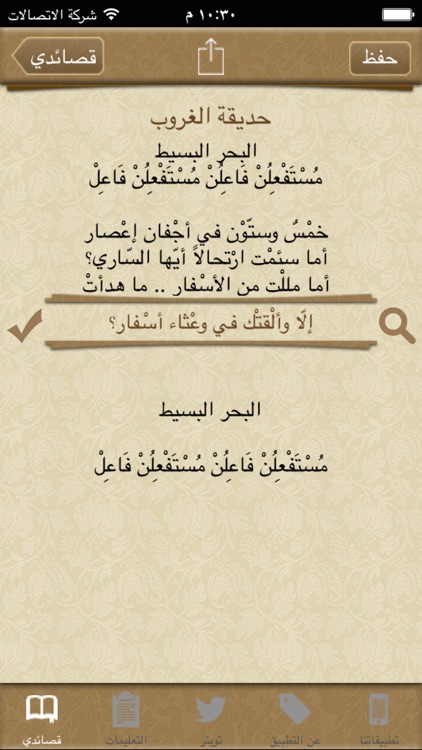 شركة الاتصالات ١٠:٣٠ م
قصائدي حفظ
حديقة الغروب
البحر البسيط
مُسْتَفْعِلُنْ فَاعِلُنْ مُسْتَفْعِلُنْ فَاعِلْ
خمْسٌ وستّوْن في أجْفان إعْصار
أما سئمْت ارْتحالاً أيّها السّاري؟
أما مللْت من الأسْفار .. ما هدأتْ
إلّا وألْقتْك في وعْثاء أسْفار؟
البحر البسيط
مُسْتَفْعِلُنْ فَاعِلُنْ مُسْتَفْعِلُنْ فَاعِلْ
تطبيقاتنا عن التطبيق تويتر التعليمات قصائدي